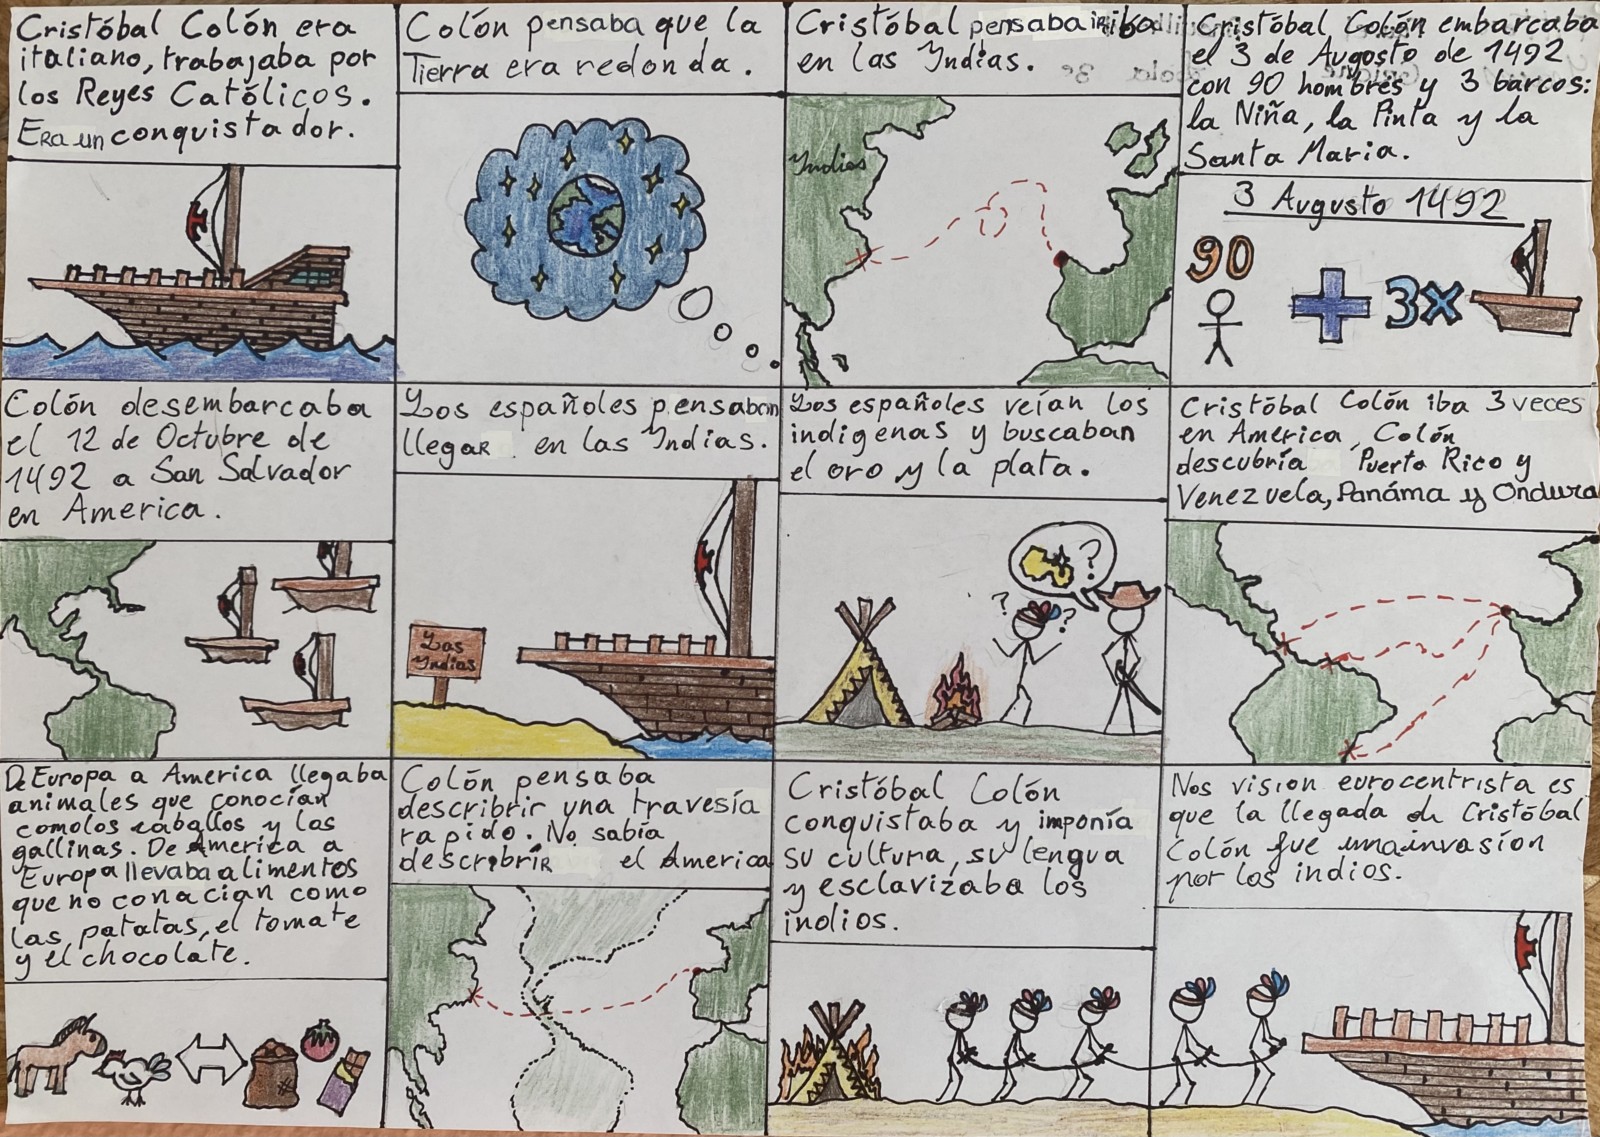 Cristóbal Colón era
italiano, trabajaba por
los Reyes Católicos.
Era un conquistador.
Colón pensaba que la
Tierra era redonda.
Cristóbal pensaba iba
en las Yndias.
Yndias
Cristóbal Colón embarcaba
el 3 de Augosto de 1492
con 90 hombres y 3 barcos:
la Niña, la Pinta y la
Santa Maria.
3 Augusto 1492
90
3x
Colón desembarcaba
el 12 de Octubre de
1492 a San Salvador
en America.
Los españoles pensaban
llegar en las Yndias.
Las
Yndias
Los españoles veían los
indigenas y buscaban
el oro y la plata.
?
?
?
Cristóbal Colón iba 3 veces
en America, Colón
descubría Puerto Rico y
Venezuela, Panáma y Ondura
De Europa a America llegaba
animales que conocían
comolos caballos y las
gallinas. De America a
Europa llevaba alimentos
que no conacian como
las patatas, el tomate
y el chocolate.
Colón pensaba
describrir una travesía
rapido. No sabía
describrir el America
Cristóbal Colón
conquistaba y imponía
su cultura, su lengua
y esclavizaba los
indios.
Nos vision eurocentrista es
que la llegada de Cristóbal
Colón fue una invasíon
por los indios.